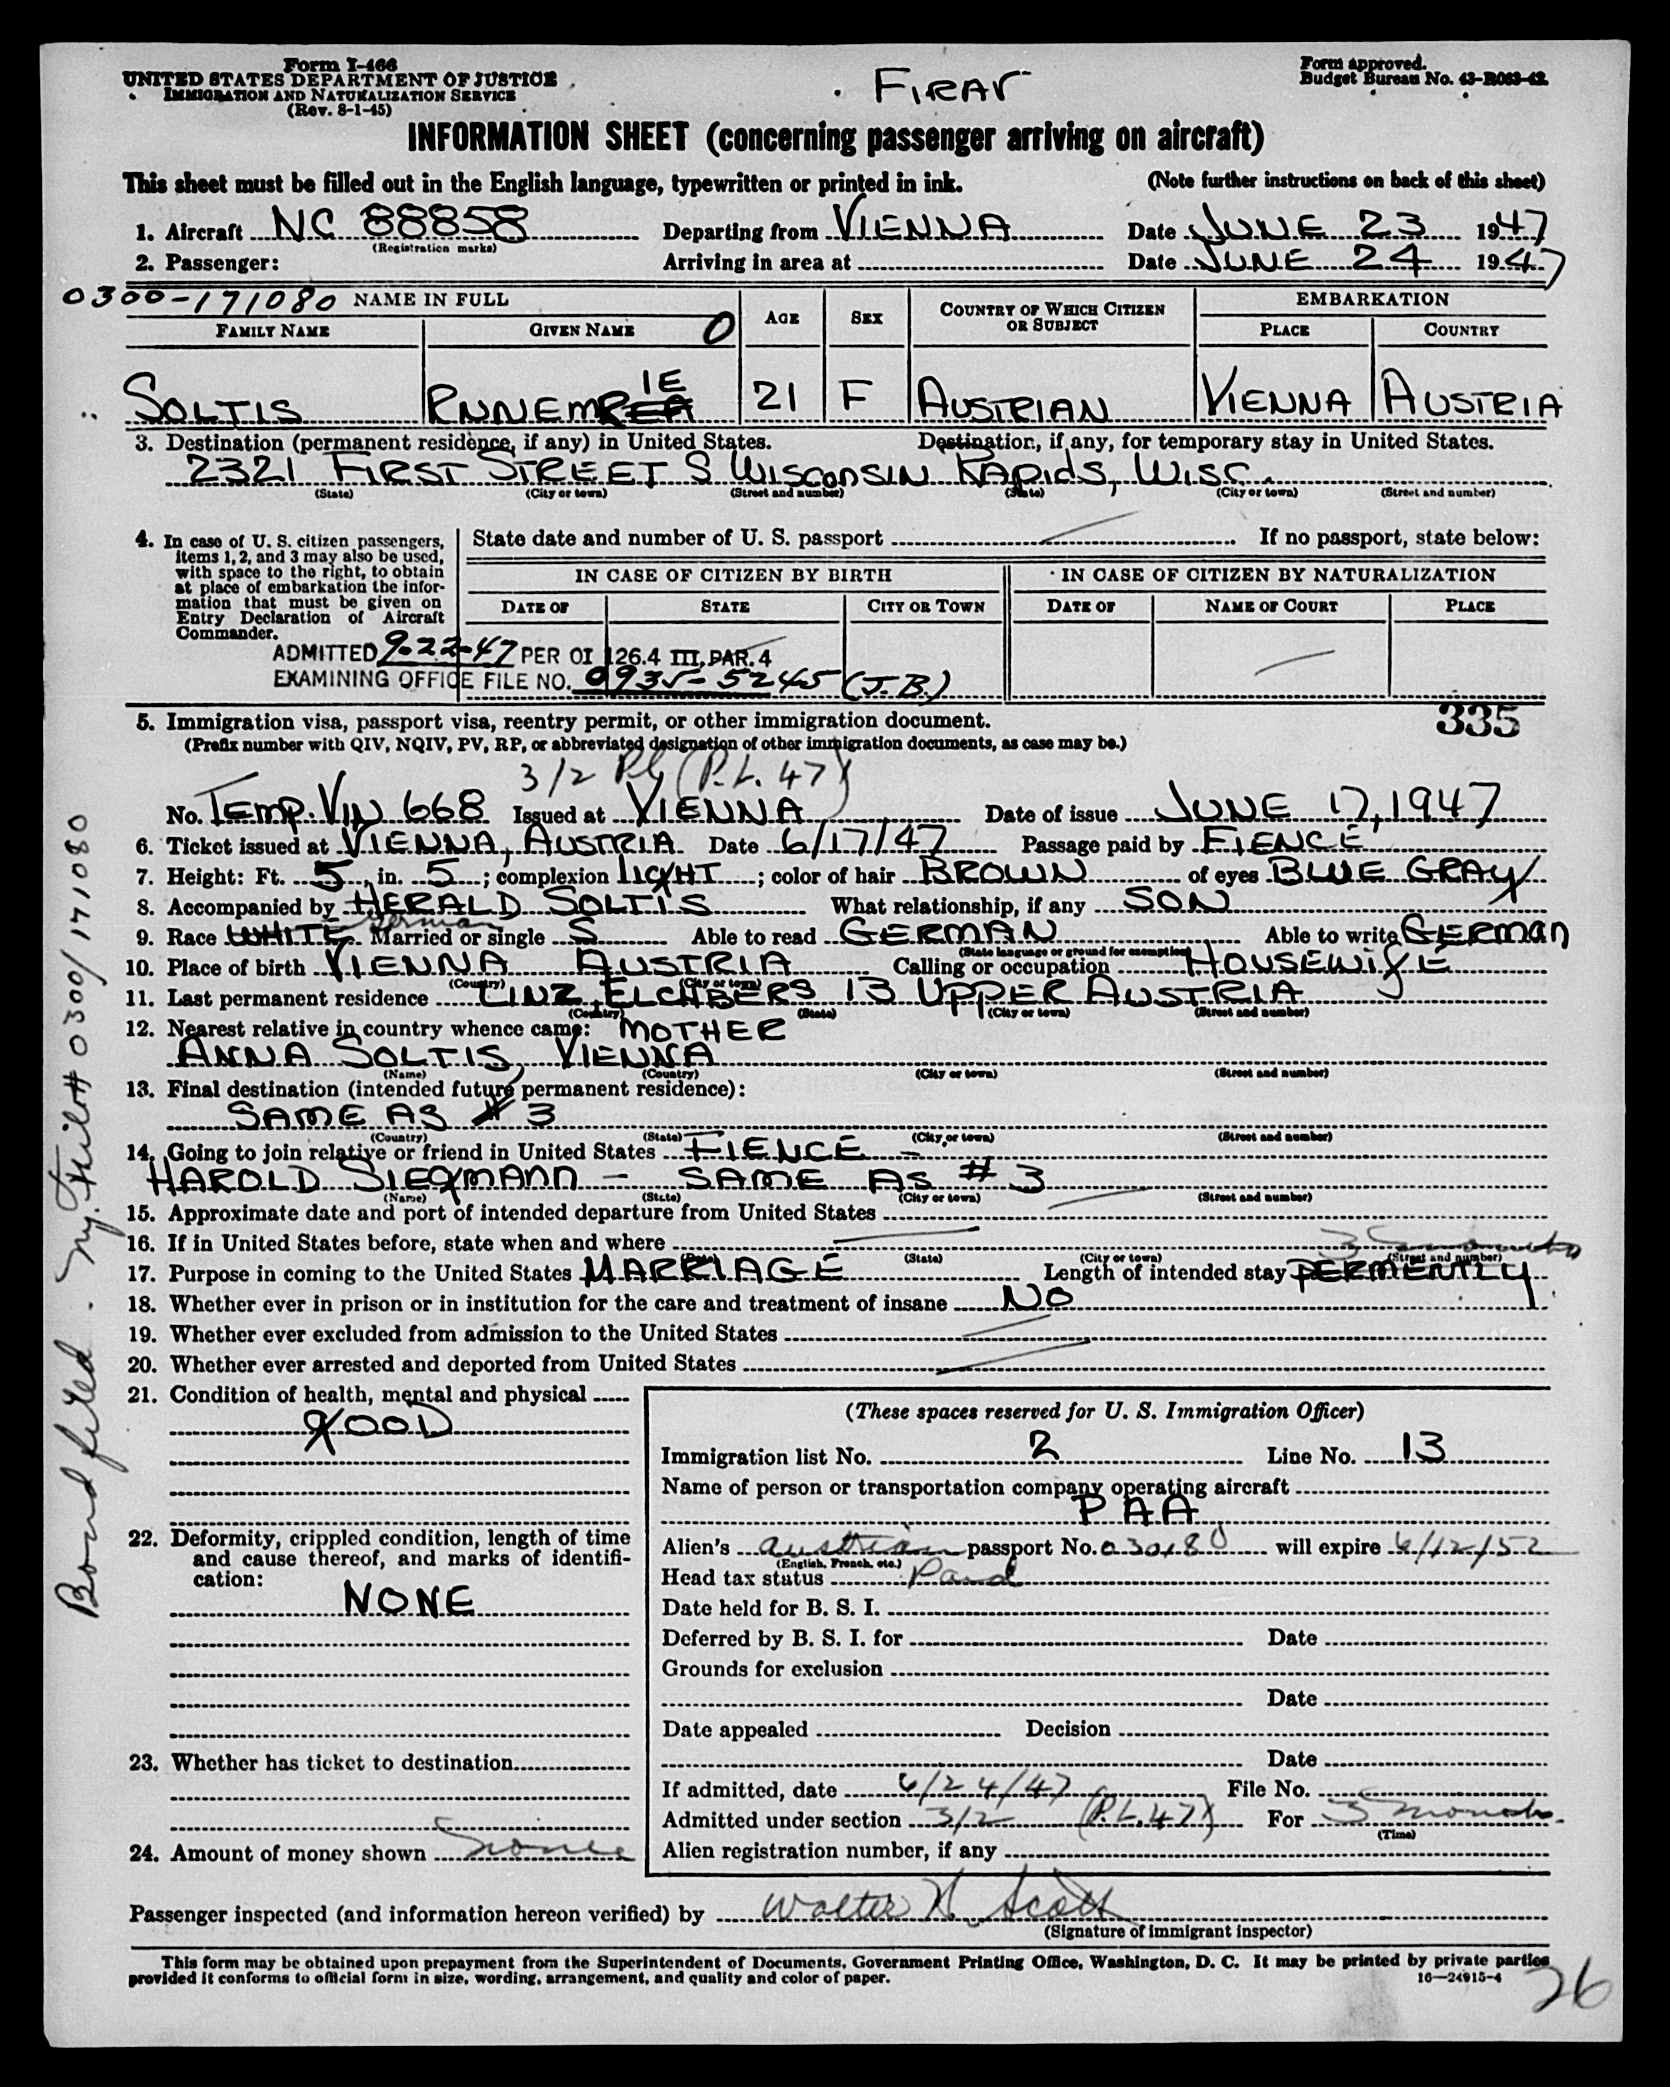 Form I-466
UNITED STATES DEPARTMENT OF JUSTICE
IMMIGRATION AND NATURALIZATION SERVICE
(Rev. 8-1-45)
Form approved.
Budget Bureau No. 43-R063-42.
INFORMATION SHEET (concerning passenger arriving on aircraft)
This sheet must be filled out in the English language, typewritten or printed in ink. (Note further instructions on back of this sheet)
1. Aircraft NC 88858 Departing from VIENNA Date JUNE 23 1947
(Registration marks)
2. Passenger: Arriving in area at Date JUNE 24 1947
0300-171080 NAME IN FULL AGE SEX COUNTRY OF WHICH CITIZEN OR SUBJECT EMBARKATION
FAMILY NAME GIVEN NAME 0 PLACE COUNTRY
SOLTIS ANNEMARIE 21 F AUSTRIAN VIENNA AUSTRIA
3. Destination (permanent residence, if any) in United States. Destination, if any, for temporary stay in United States.
2321 FIRST STREET S WISCONSIN RAPIDS, WISC.
(State) (City or town) (Street and number) (State) (City or town) (Street and number)
4. In case of U. S. citizen passengers, items 1, 2, and 3 may also be used, with space to the right, to obtain at place of embarkation the information that must be given on Entry Declaration of Aircraft Commander.
State date and number of U. S. passport If no passport, state below:
IN CASE OF CITIZEN BY BIRTH IN CASE OF CITIZEN BY NATURALIZATION
DATE OF STATE CITY OR TOWN DATE OF NAME OF COURT PLACE
ADMITTED 9-22-47 PER OI 126.4 III, PAR. 4
EXAMINING OFFICE FILE NO. 0935-5245 (J.B.)
5. Immigration visa, passport visa, reentry permit, or other immigration document. 335
(Prefix number with QIV, NQIV, PV, RP, or abbreviated designation of other immigration documents, as case may be.)
3/2 PL (P.L. 47)
No. TEMP. VIN 668 Issued at VIENNA Date of issue JUNE 17, 1947
6. Ticket issued at VIENNA, AUSTRIA Date 6/17/47 Passage paid by FIENCE
7. Height: Ft. 5, in. 5; complexion LIGHT; color of hair BROWN of eyes BLUE GRAY
8. Accompanied by HERALD SOLTIS What relationship, if any SON
9. Race WHITE German Married or single S Able to read GERMAN Able to write GERMAN
(State language or ground for exemption)
10. Place of birth VIENNA AUSTRIA Calling or occupation HOUSEWIFE
(Country) (City or town)
11. Last permanent residence LINZ, ELCHBERS 13 UPPER AUSTRIA
(Country) (State) (City or town) (Street and number)
12. Nearest relative in country whence came: MOTHER
ANNA SOLTIS, VIENNA
(Name) (Country) (City or town) (Street and number)
13. Final destination (intended future permanent residence):
SAME AS # 3
(Country) (State) (City or town) (Street and number)
14. Going to join relative or friend in United States FIENCE -
HAROLD SIEGMANN - SAME AS # 3
(Name) (State) (City or town) (Street and number)
15. Approximate date and port of intended departure from United States
16. If in United States before, state when and where 3 months
(Date) (State) (City or town) (Street and number)
17. Purpose in coming to the United States MARRIAGE Length of intended stay PERMENTLY
18. Whether ever in prison or in institution for the care and treatment of insane NO
19. Whether ever excluded from admission to the United States
20. Whether ever arrested and deported from United States
21. Condition of health, mental and physical
GOOD
22. Deformity, crippled condition, length of time and cause thereof, and marks of identification:
NONE
23. Whether has ticket to destination
24. Amount of money shown none
(These spaces reserved for U. S. Immigration Officer)
Immigration list No. 2 Line No. 13
Name of person or transportation company operating aircraft
PAA
Alien's Austrian passport No. 030180 will expire 6/12/52
(English, French, etc.)
Head tax status Paid
Date held for B. S. I.
Deferred by B. S. I. for Date
Grounds for exclusion
Date
Date appealed Decision
Date
If admitted, date 6/24/47 File No.
Admitted under section 3/2 (P.L. 47) For 3 months
(Time)
Alien registration number, if any
Passenger inspected (and information hereon verified) by Walter H. Scott
(Signature of immigrant inspector)
This form may be obtained upon prepayment from the Superintendent of Documents, Government Printing Office, Washington, D. C. It may be printed by private parties
provided it conforms to official form in size, wording, arrangement, and quality and color of paper. 16—24915-4
26
Bond filed. Ny. File # 0300/171080